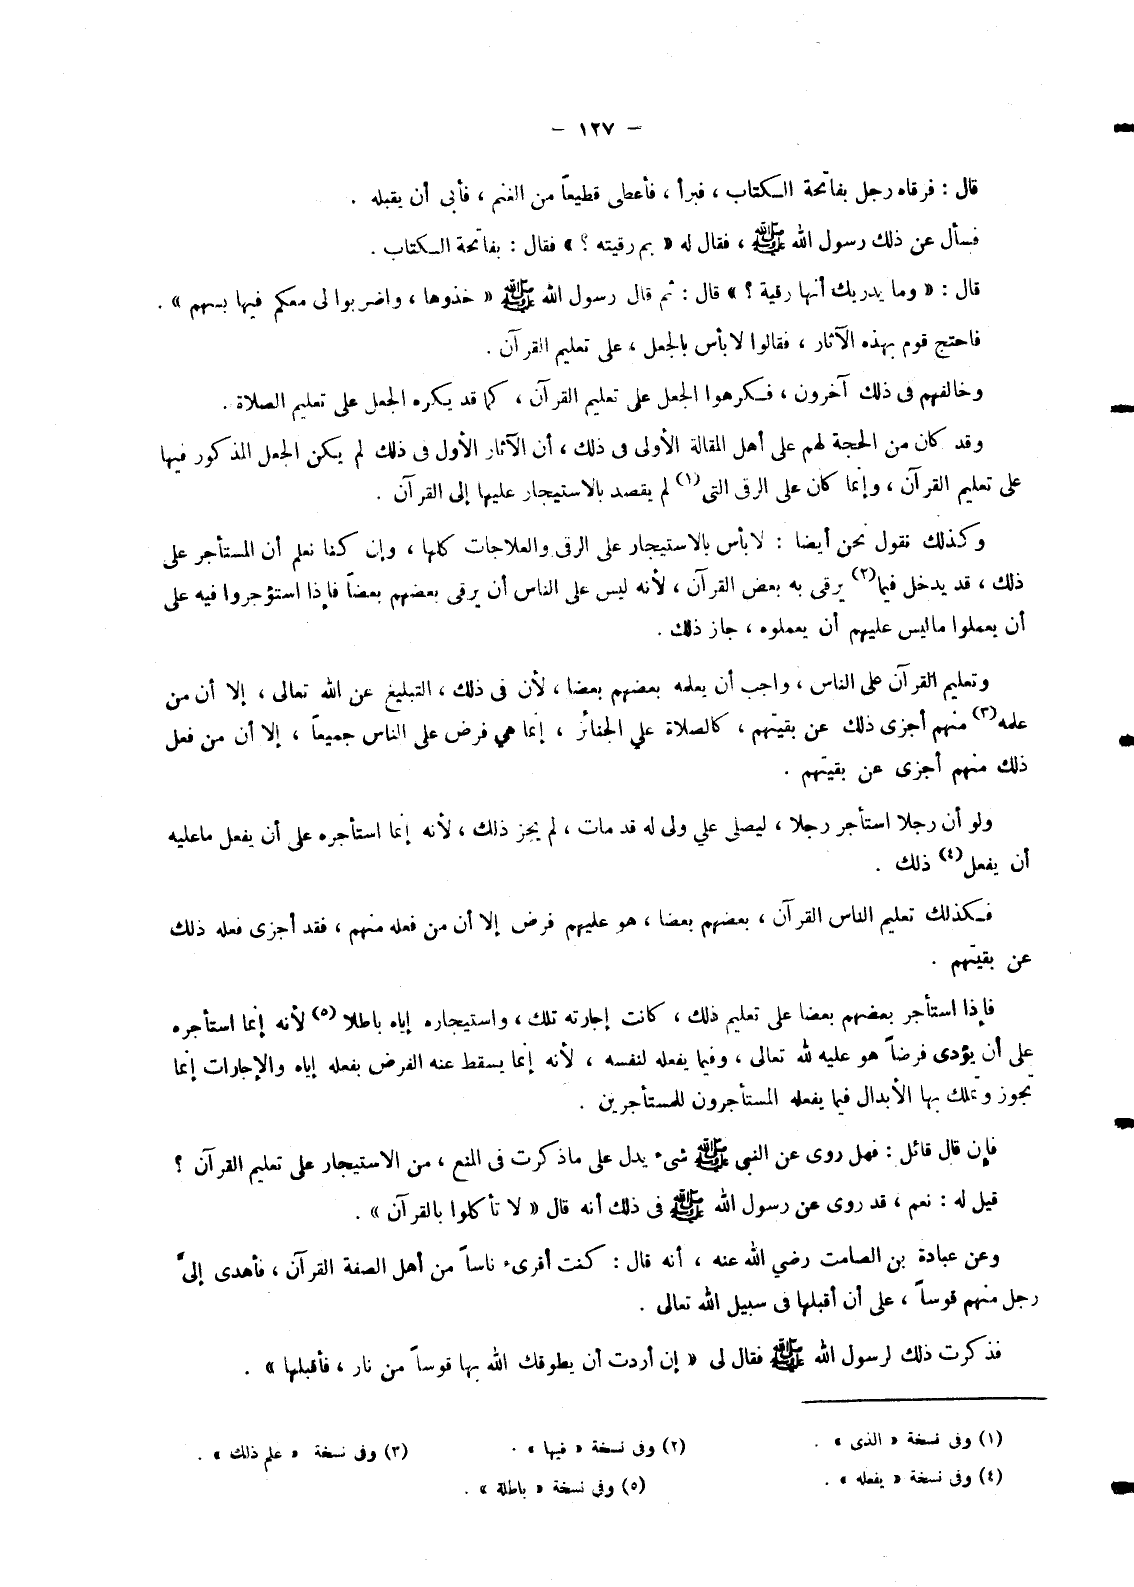 — ١٢٧ —
قال : فرقاه رجل بفاتحة الكتاب ، فبرأ ، فأعطى قطيعاً من الغنم ، فأبى أن يقبله .
فسأل عن ذلك رسول الله ﷺ ، فقال له « بم رقيته ؟ » فقال : بفاتحة الكتاب .
قال : « وما يدريك أنها رقية ؟ » قال : ثم قال رسول الله ﷺ « خذوها ، واضربوا لى معكم فيها بسهم » .
فاحتج قوم بهذه الآثار ، فقالوا لا بأس بالجعل ، على تعليم القرآن .
وخالفهم فى ذلك آخرون ، فكرهوا الجعل على تعليم القرآن ، كما قد يكره الجعل على تعليم الصلاة .
وقد كان من الحجة لهم على أهل المقالة الأولى فى ذلك ، أن الآثار الأول فى ذلك لم يكن الجعل المذكور فيها
على تعليم القرآن ، وإنما كان على الرقى التى(١) لم يقصد بالاستيجار عليها إلى القرآن .
وكذلك نقول نحن أيضا : لا بأس بالاستيجار على الرقى والعلاجات كلها ، وإن كنا نعلم أن المستأجر على
ذلك ، قد يدخل فيما(٢) يرقى به بعض القرآن ، لأنه ليس على الناس أن يرقى بعضهم بعضاً فإذا استؤجروا فيه على
أن يعملوا ماليس عليهم أن يعملوه ، جاز ذلك .
وتعليم القرآن على الناس ، واجب أن يعلمه بعضهم بعضا ، لأن فى ذلك ، التبليغ عن الله تعالى ، إلا أن من
علمه(٣) منهم أجزى ذلك عن بقيتهم ، كالصلاة علي الجنائز ، إنما هي فرض على الناس جميعاً ، إلا أن من فعل
ذلك منهم أجزى عن بقيتهم .
ولو أن رجلا استأجر رجلا ، ليصلى علي ولى له قد مات ، لم يجز ذلك ، لأنه إنما استأجره على أن يفعل ماعليه
أن يفعل(٤) ذلك .
فكذلك تعليم الناس القرآن ، بعضهم بعضا ، هو عليهم فرض إلا أن من فعله منهم ، فقد أجزى فعله ذلك
عن بقيتهم .
فإذا استأجر بعضهم بعضا على تعليم ذلك ، كانت إجارته تلك ، واستيجاره إياه باطلا (٥) لأنه إنما استأجره
على أن يؤدى فرضاً هو عليه لله تعالى ، وفيما يفعله لنفسه ، لأنه إنما يسقط عنه الفرض بفعله إياه والإجارات إنما
تجوز وتملك بها الأبدال فيما يفعله المستأجرون للمستأجرين .
فإن قال قائل : فهل روى عن النبى ﷺ شىء يدل على ماذكرت فى المنع ، من الاستيجار على تعليم القرآن ؟
قيل له : نعم ، قد روى عن رسول الله ﷺ فى ذلك أنه قال « لا تأكلوا بالقرآن » .
وعن عبادة بن الصامت رضي الله عنه ، أنه قال : كنت أقرىء ناساً من أهل الصفة القرآن ، فأهدى إلىَّ
رجل منهم قوساً ، على أن أقبلها فى سبيل الله تعالى .
فذكرت ذلك لرسول الله ﷺ فقال لى « إن أردت أن يطوقك الله بها قوساً من نار ، فأقبلها » .
(١) وفى نسخة « الذى » . (٢) وفى نسخة « فيها » . (٣) وفى نسخة « علم ذلك » .
(٤) وفى نسخة « يفعله » . (٥) وفي نسخة « باطلة » .